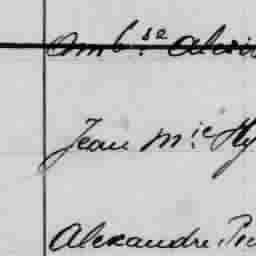 Amb.se Alexis
Jean M.ie Hy
Alexandre Pie